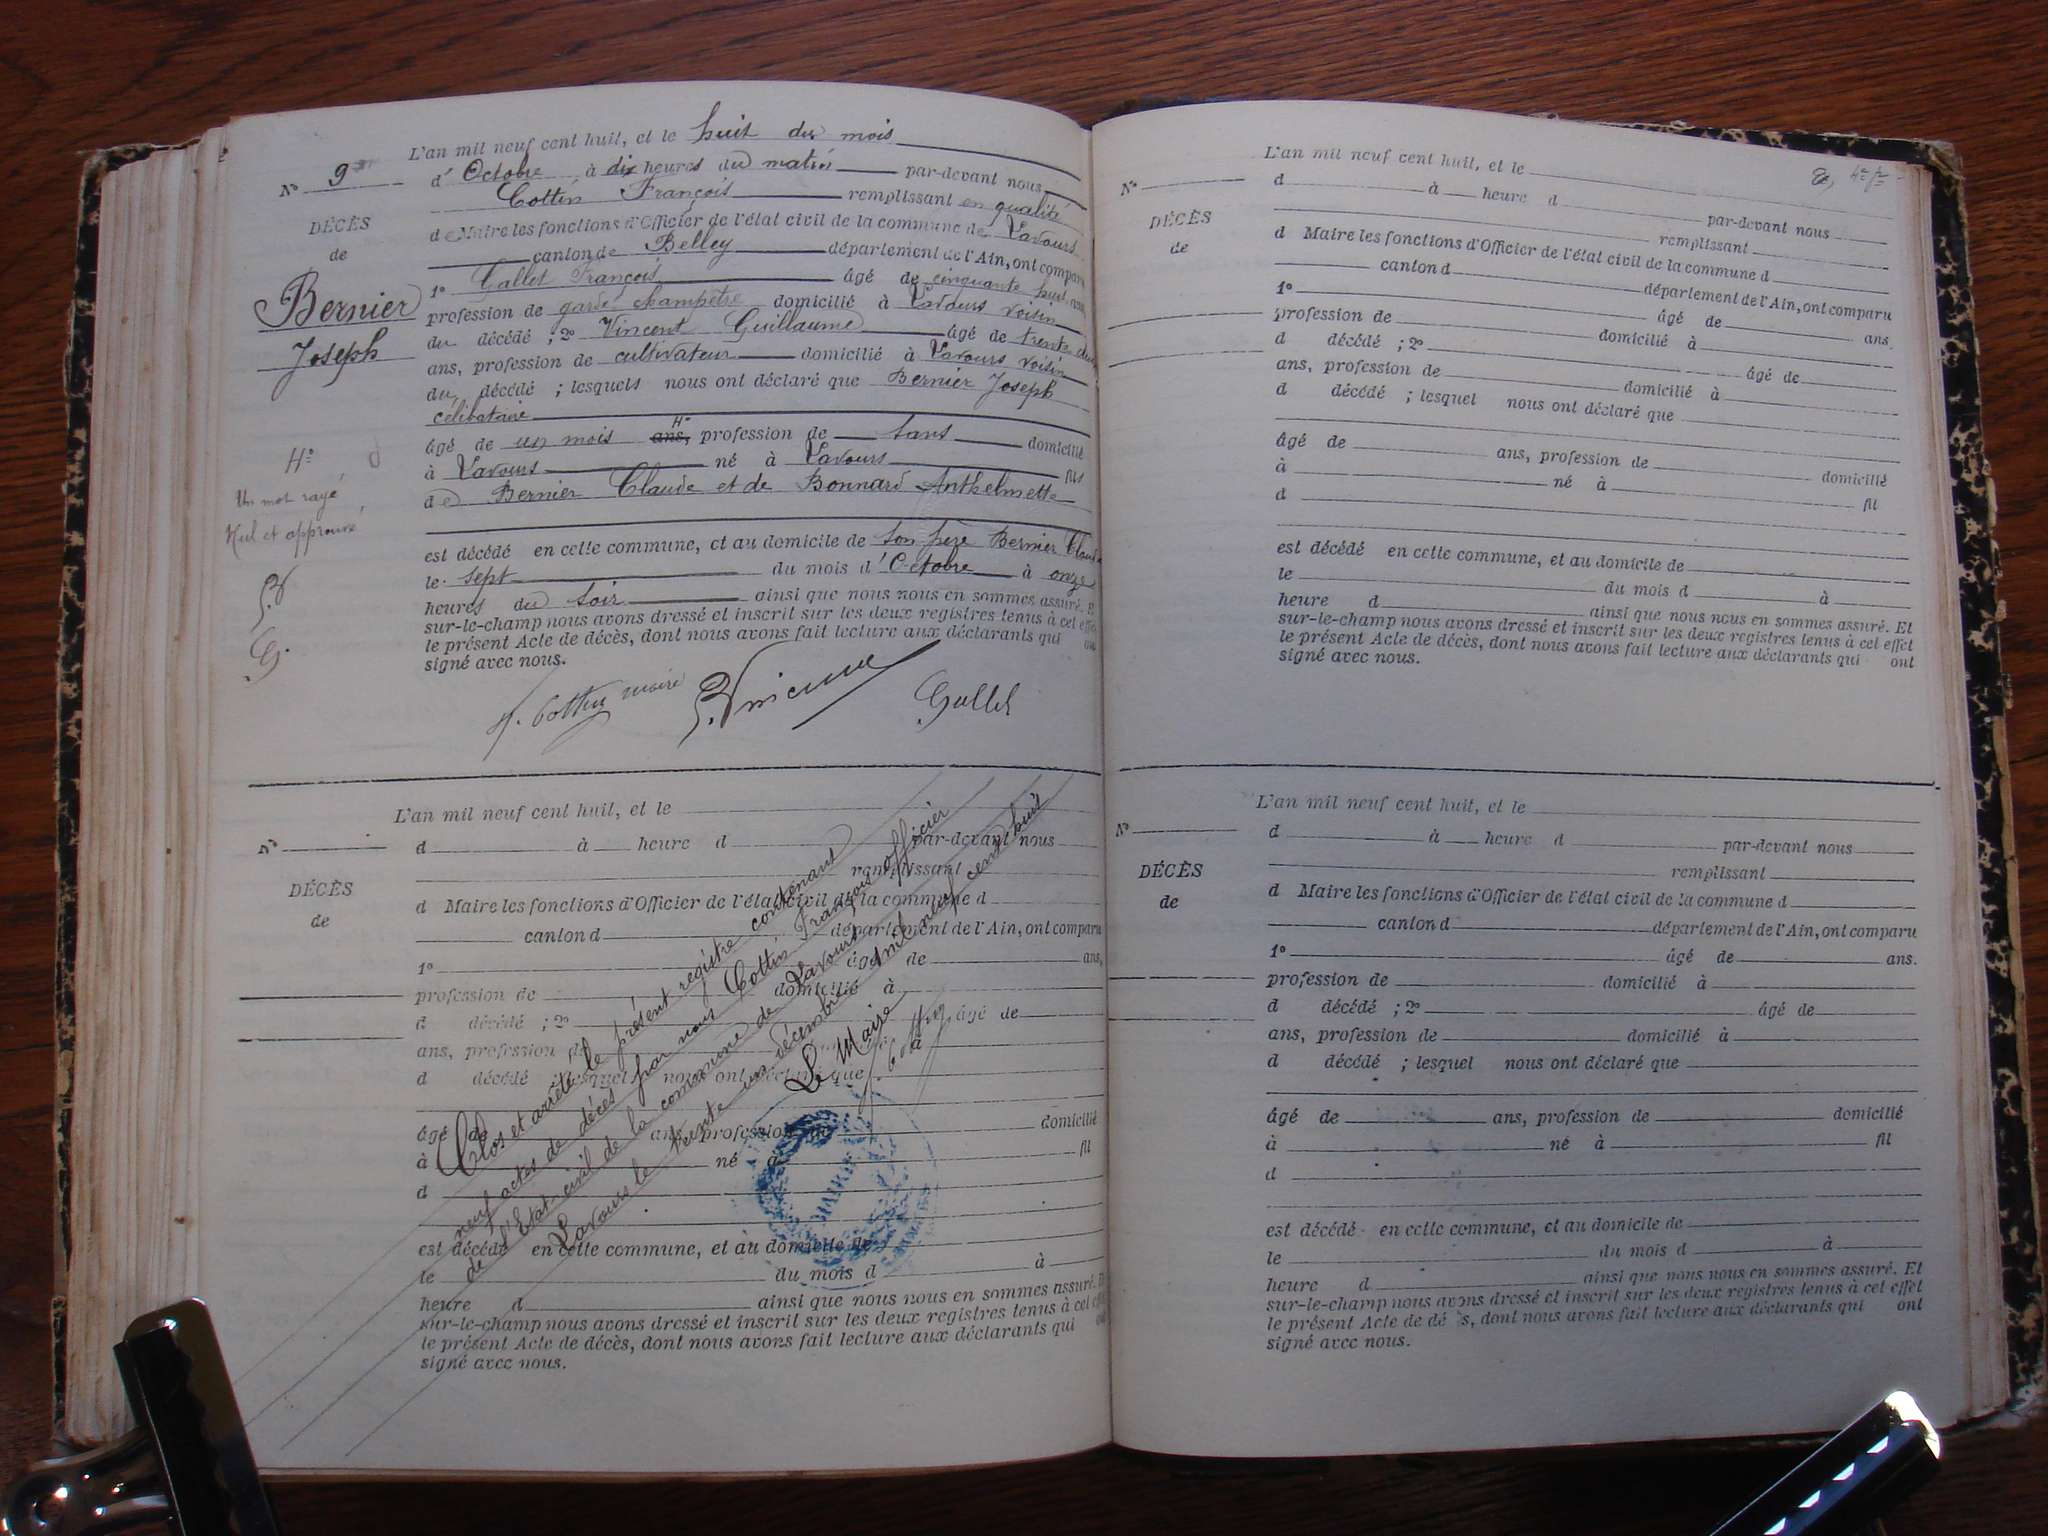 L'an mil neuf cent huit, et le huit du mois
No 9
d'Octobre à dix heures du matin par-devant nous
Cottin François remplissant en qualité
DÉCÈS
de
Bernier
Joseph
de Maire les fonctions d'Officier de l'état civil de la commune de Lavours
canton de Belley département de l'Ain, ont comparu
1o Gallet François âgé de cinquante huit ans
profession de garde champêtre domicilié à Lavours voisin
du décédé ; 2o Vincent Guillaume âgé de trente deux
ans, profession de cultivateur domicilié à Lavours voisin
du décédé ; lesquels nous ont déclaré que Bernier Joseph
célibataire
âgé de un mois ans, profession de sans domicilié
à Lavours né à Lavours fils
de Bernier Claude et de Bonnard Anthelmette
Un mot rayé
Nul et approuvé
est décédé en cette commune, et au domicile de son père Bernier Claude
le sept du mois d'Octobre à onze
heures du soir ainsi que nous nous en sommes assuré. E
sur-le-champ nous avons dressé et inscrit sur les deux registres tenus à cet effe
le présent Acte de décès, dont nous avons fait lecture aux déclarants qui on
signé avec nous.
f. Cottin maire
Vincent
Gallet
L'an mil neuf cent huit, et le
No
d à heure d par-devant nous
remplissant
DÉCÈS
de
d Maire les fonctions d'Officier de l'état civil de la commune d
canton d département de l'Ain, ont comparu
1o âgé de ans,
profession de domicilié à
d décédé ; 2o âgé de
ans, profession de à
d décédé ; lesquel nous ont déclaré que
âgé de ans, profession de domicilié
à né à fil
d
est décédé en cette commune, et au domicile de
le du mois d à
heure d ainsi que nous nous en sommes assuré. E
sur-le-champ nous avons dressé et inscrit sur les deux registres tenus à cet effe
le présent Acte de décès, dont nous avons fait lecture aux déclarants qui on
signé avec nous.
Clos et arrêté le présent registre contenant
neuf actes de décès par nous Cottin François officier
de l'Etat-civil de la commune de Lavours
Lavours le trente un décembre mil neuf cent huit
Le Maire
f. Cottin
MAIRIE
L'an mil neuf cent huit, et le
No
d à heure d par-devant nous
remplissant
DÉCÈS
de
d Maire les fonctions d'Officier de l'état civil de la commune d
canton d département de l'Ain, ont comparu
1o âgé de ans.
profession de domicilié à
d décédé ; 2o âgé de
ans, profession de domicilié à
d décédé ; lesquel nous ont déclaré que
âgé de ans, profession de domicilié
à né à fil
d
est décédé en cette commune, et au domicile de
le du mois d à
heure d ainsi que nous nous en sommes assuré. Et
sur-le-champ nous avons dressé et inscrit sur les deux registres tenus à cet effet
le présent Acte de décès, dont nous avons fait lecture aux déclarants qui ont
signé avec nous.
L'an mil neuf cent huit, et le
No
d à heure d par-devant nous
remplissant
DÉCÈS
de
d Maire les fonctions d'Officier de l'état civil de la commune d
canton d département de l'Ain, ont comparu
1o âgé de ans.
profession de domicilié à
d décédé ; 2o âgé de
ans, profession de domicilié à
d décédé ; lesquel nous ont déclaré que
âgé de ans, profession de domicilié
à né à fil
d
est décédé en cette commune, et au domicile de
le du mois d à
heure d ainsi que nous nous en sommes assuré. Et
sur-le-champ nous avons dressé et inscrit sur les deux registres tenus à cet effet
le présent Acte de dé ès, dont nous avons fait lecture aux déclarants qui ont
signé avec nous.